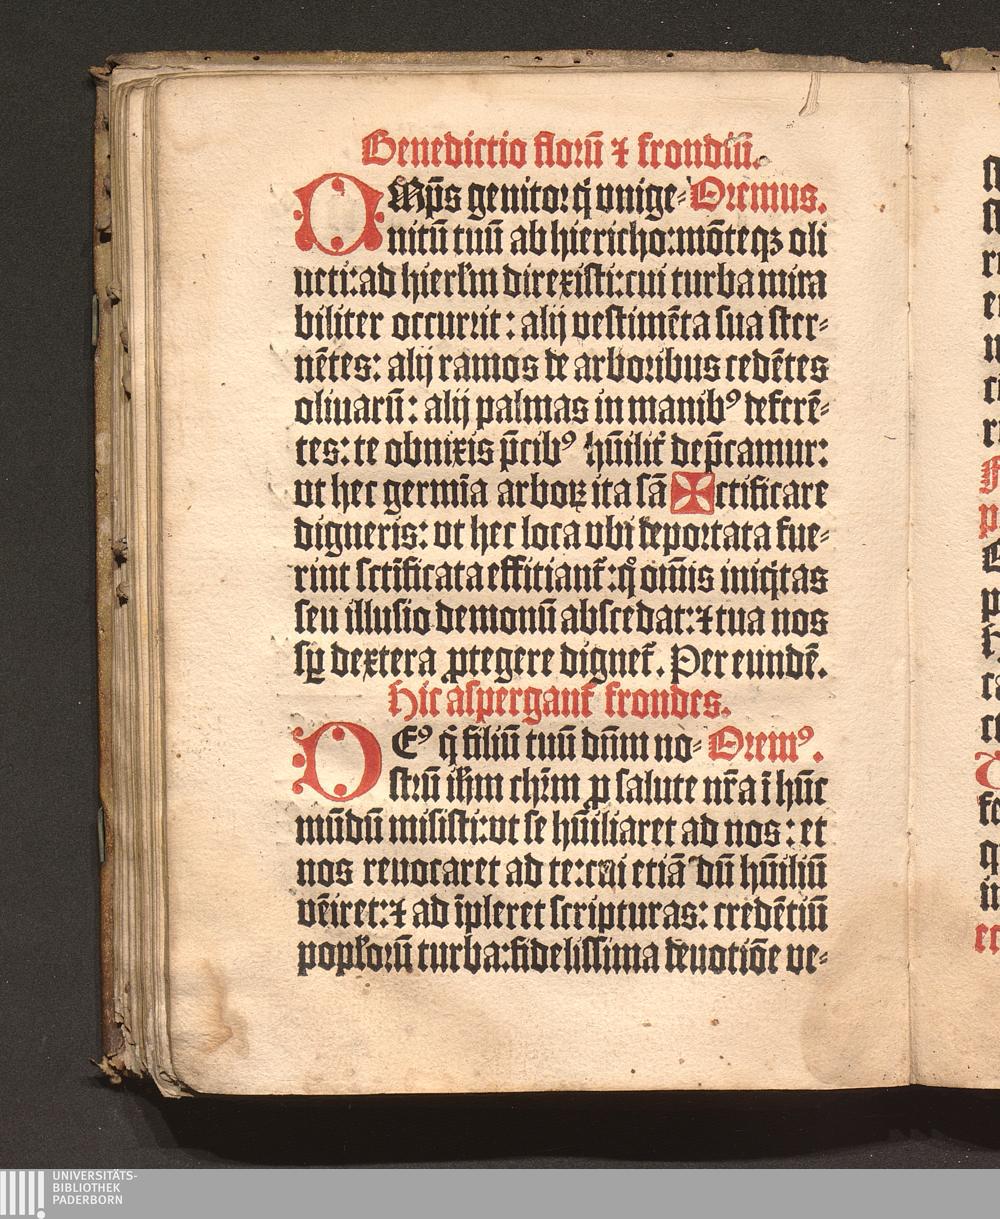 Benedictio floꝝ ⁊ frondiū.
OMp̄s genitor q̇ vnige⸗ Oremus.
nitū tuū ab hiericho: mōteqꝫ oli
ueti: ad hierlm̄ direxisti: cui turba mira
biliter occurrit: alij vestimēta sua ster⸗
nētes: alij ramos de arboribus cedētes
oliuarū: alij palmas in manibꝰ deferē⸗
tes: te obnixis p̄cibꝰ hūilit̄ dep̄camur:
vt hec germīa arboꝝ ita sā ✠ ctificare
digneris: vt hec loca vbi deportata fue⸗
rint sctīficata effitiant̄: qͦ om̄is iniqͥtas
seu illusio demonū abscedat: ⁊ tua nos
sꝑ dextera ꝓtegere dignet̄. Per eundē.
Hic aspergant̄ frondes.
DEꝰ q̇ filiū tuū dn̄m no⸗ Oremꝰ.
strū ihm̄ chrm̄ ꝓ salute nr̄a ī hūc
mūdū misisti: vt se hūiliaret ad nos: et
nos reuocaret ad te: cui etiā dū hūiliū
vēiret: ⁊ ad īpleret scripturas: credētiū
popl̄orū turba: fidelissima deuotiōe ve⸗
UNIVERSITÄTS-
BIBLIOTHEK
PADERBORN